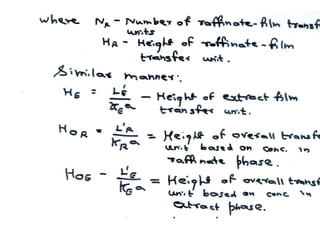 where NR – Number of raffinate-film transf
units
HR – Height of raffinate-film
transfer unit.
Similar manner:.
HE = L'E / kEa – Height of extract film
transfer unit.
HOR = L'R / KRa = Height of overall transf
unit based on conc. in
raffinate phase.
HOE - L'E / KEa = Height of overall transf
unit based on conc in
extract phase.